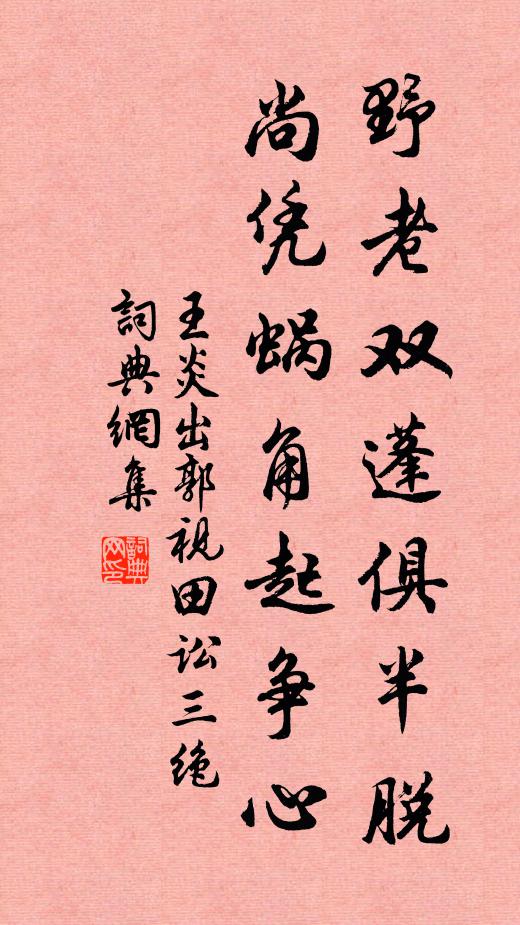 野老双蓬俱半脱
尚凭蜗角起争心
王炎出郭视田讼三绝
詞典網集
詞典网印